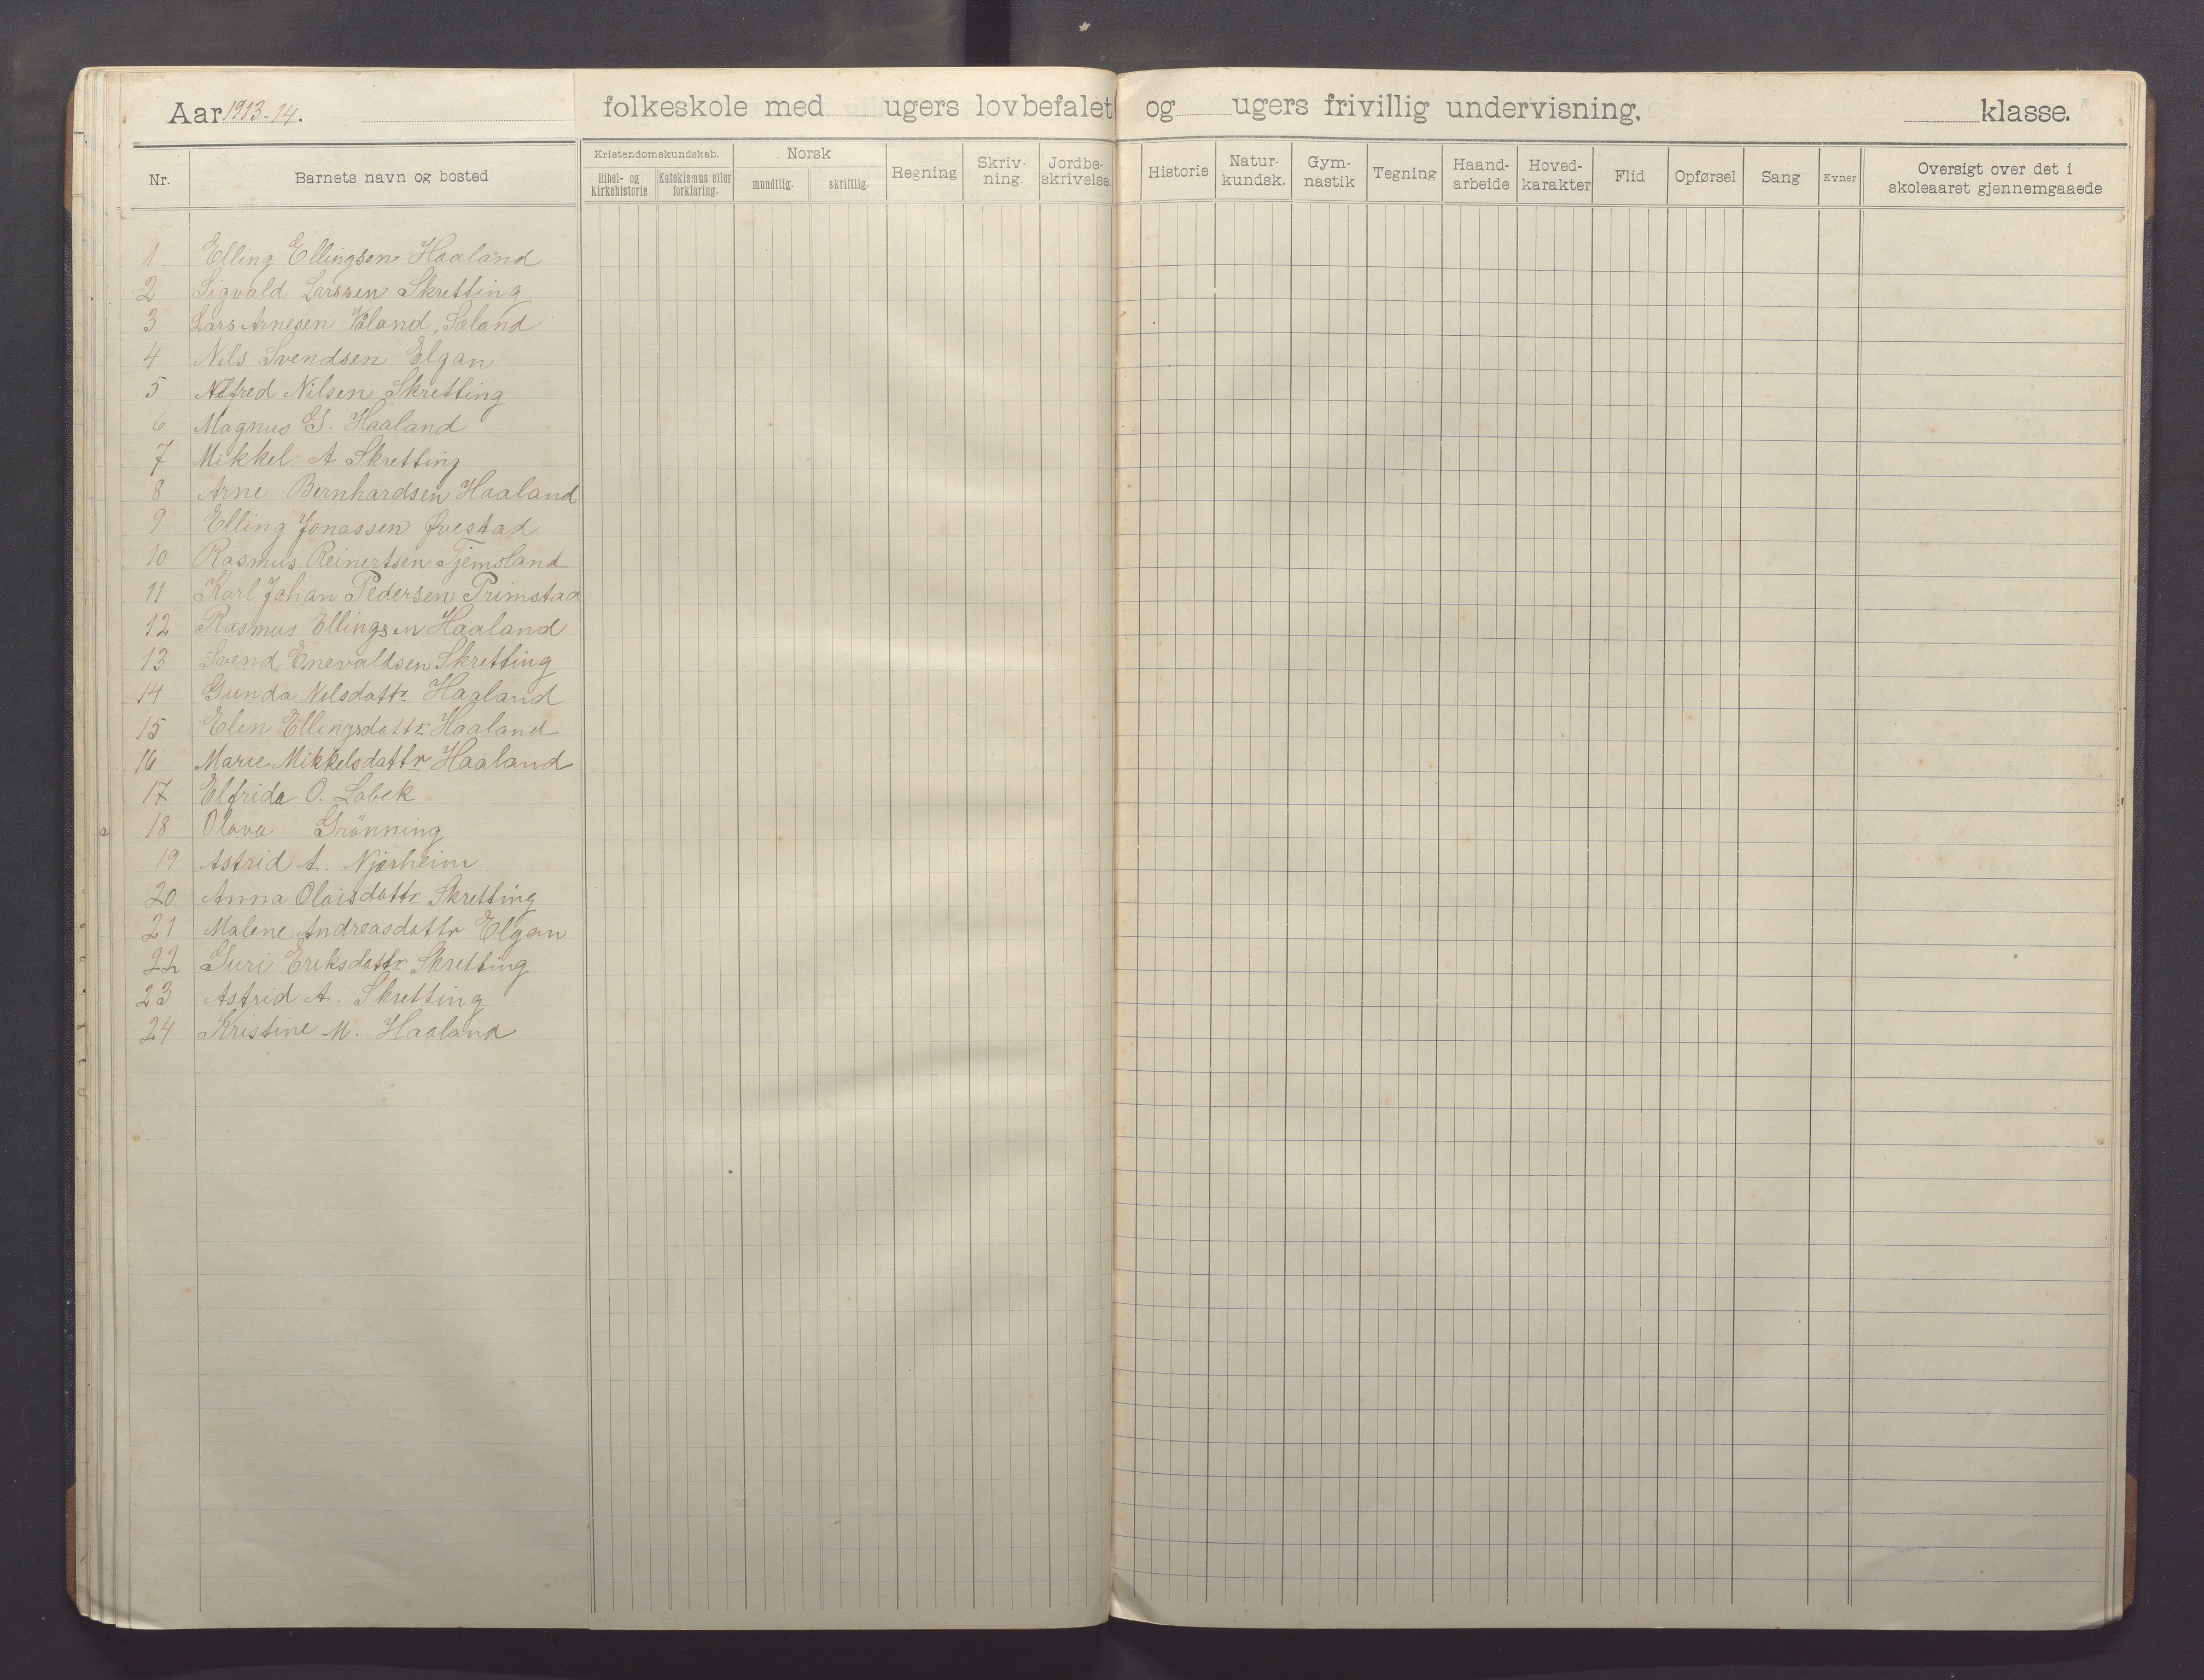 Aar 1913-14. folkeskole med ugers lovbefalet og ugers frivillig undervisning. klasse.
Nr. Barnets navn og bosted Kristendomskundskab. Bibel- og kirkehistorie Katekismus eller forklaring. Norsk mundtlig. skriftlig. Regning Skriv-ning. Jordbe-skrivelse Historie Natur-kundsk. Gym-nastik Tegning Haand-arbeide Hoved-karakter Flid Opførsel Sang Evner Oversigt over det i skoleaaret gjennemgaaede
1 Elling Ellingsen Haaland
2 Sigvald Larssen Skretting
3 Lars Arnesen Væland, Sæland
4 Nils Svendsen Elgan
5 Alfred Nilsen Skretting
6 Magnus G. Haaland
7 Mikkel A Skretting
8 Arne Bernhardsen Haaland
9 Elling Jonassen Øvestad
10 Rasmus Reinertsen Tjemsland
11 Karl Johan Pedersen Primstad
12 Rasmus Ellingsen Haaland
13 Svend Enevaldsen Skretting
14 Gunda Nilsdattr Haaland
15 Elen Ellingsdattr Haaland
16 Marie Mikkelsdattr Haaland
17 Elfrida O. Labek
18 Olava Grönning
19 Astrid A. Njærheim
20 Anna Olaisdattr Skretting
21 Malene Andreasdattr Elgan
22 Guri Eriksdattr Skretting
23 Astrid A. Skretting
24 Kristine M. Haaland